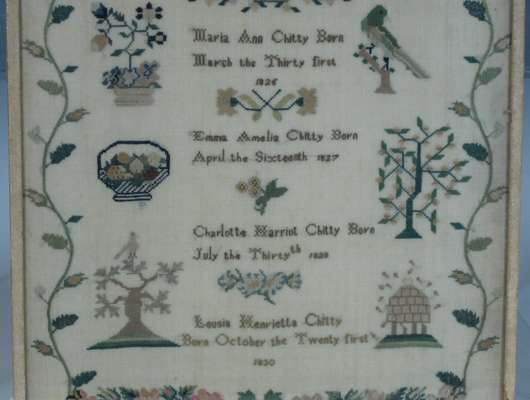 Maria Ann Chitty Born
March the Thirty first
1826
Emma Amelia Chitty Born
April the Sixteenth 1827
Charlotte Harriot Chitty Born
July the Thirty th 1828
Lousia Henrietta Chitty
Born October the Twenty first
1830